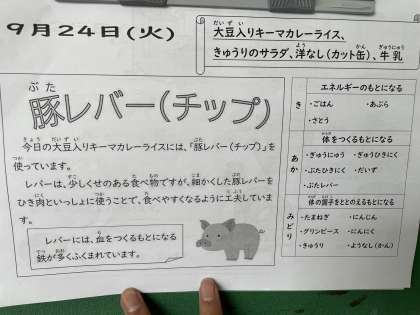 9月24日(火)
大豆入りキーマカレーライス、
きゅうりのサラダ、洋なし(カット缶)、牛乳
豚レバー(チップ)
今日の大豆入りキーマカレーライスには、「豚レバー(チップ)」を
使っています。
レバーは、少しくせのある食べ物ですが、細かくした豚レバーを
ひき肉といっしょに使うことで、食べやすくなるように工夫していま
す。
レバーには、血をつくるもとになる
鉄が多くふくまれています。
エネルギーのもとになる
き
・ごはん ・あぶら
・さとう
体をつくるもとになる
あか
・ぎゅうにゅう ・ぎゅうひきにく
・ぶたひきにく ・だいず
・ぶたレバー
体の調子をととのえるもとになる
みどり
・たまねぎ ・にんじん
・グリンピース ・にんにく
・きゅうり ・ようなし(かん)